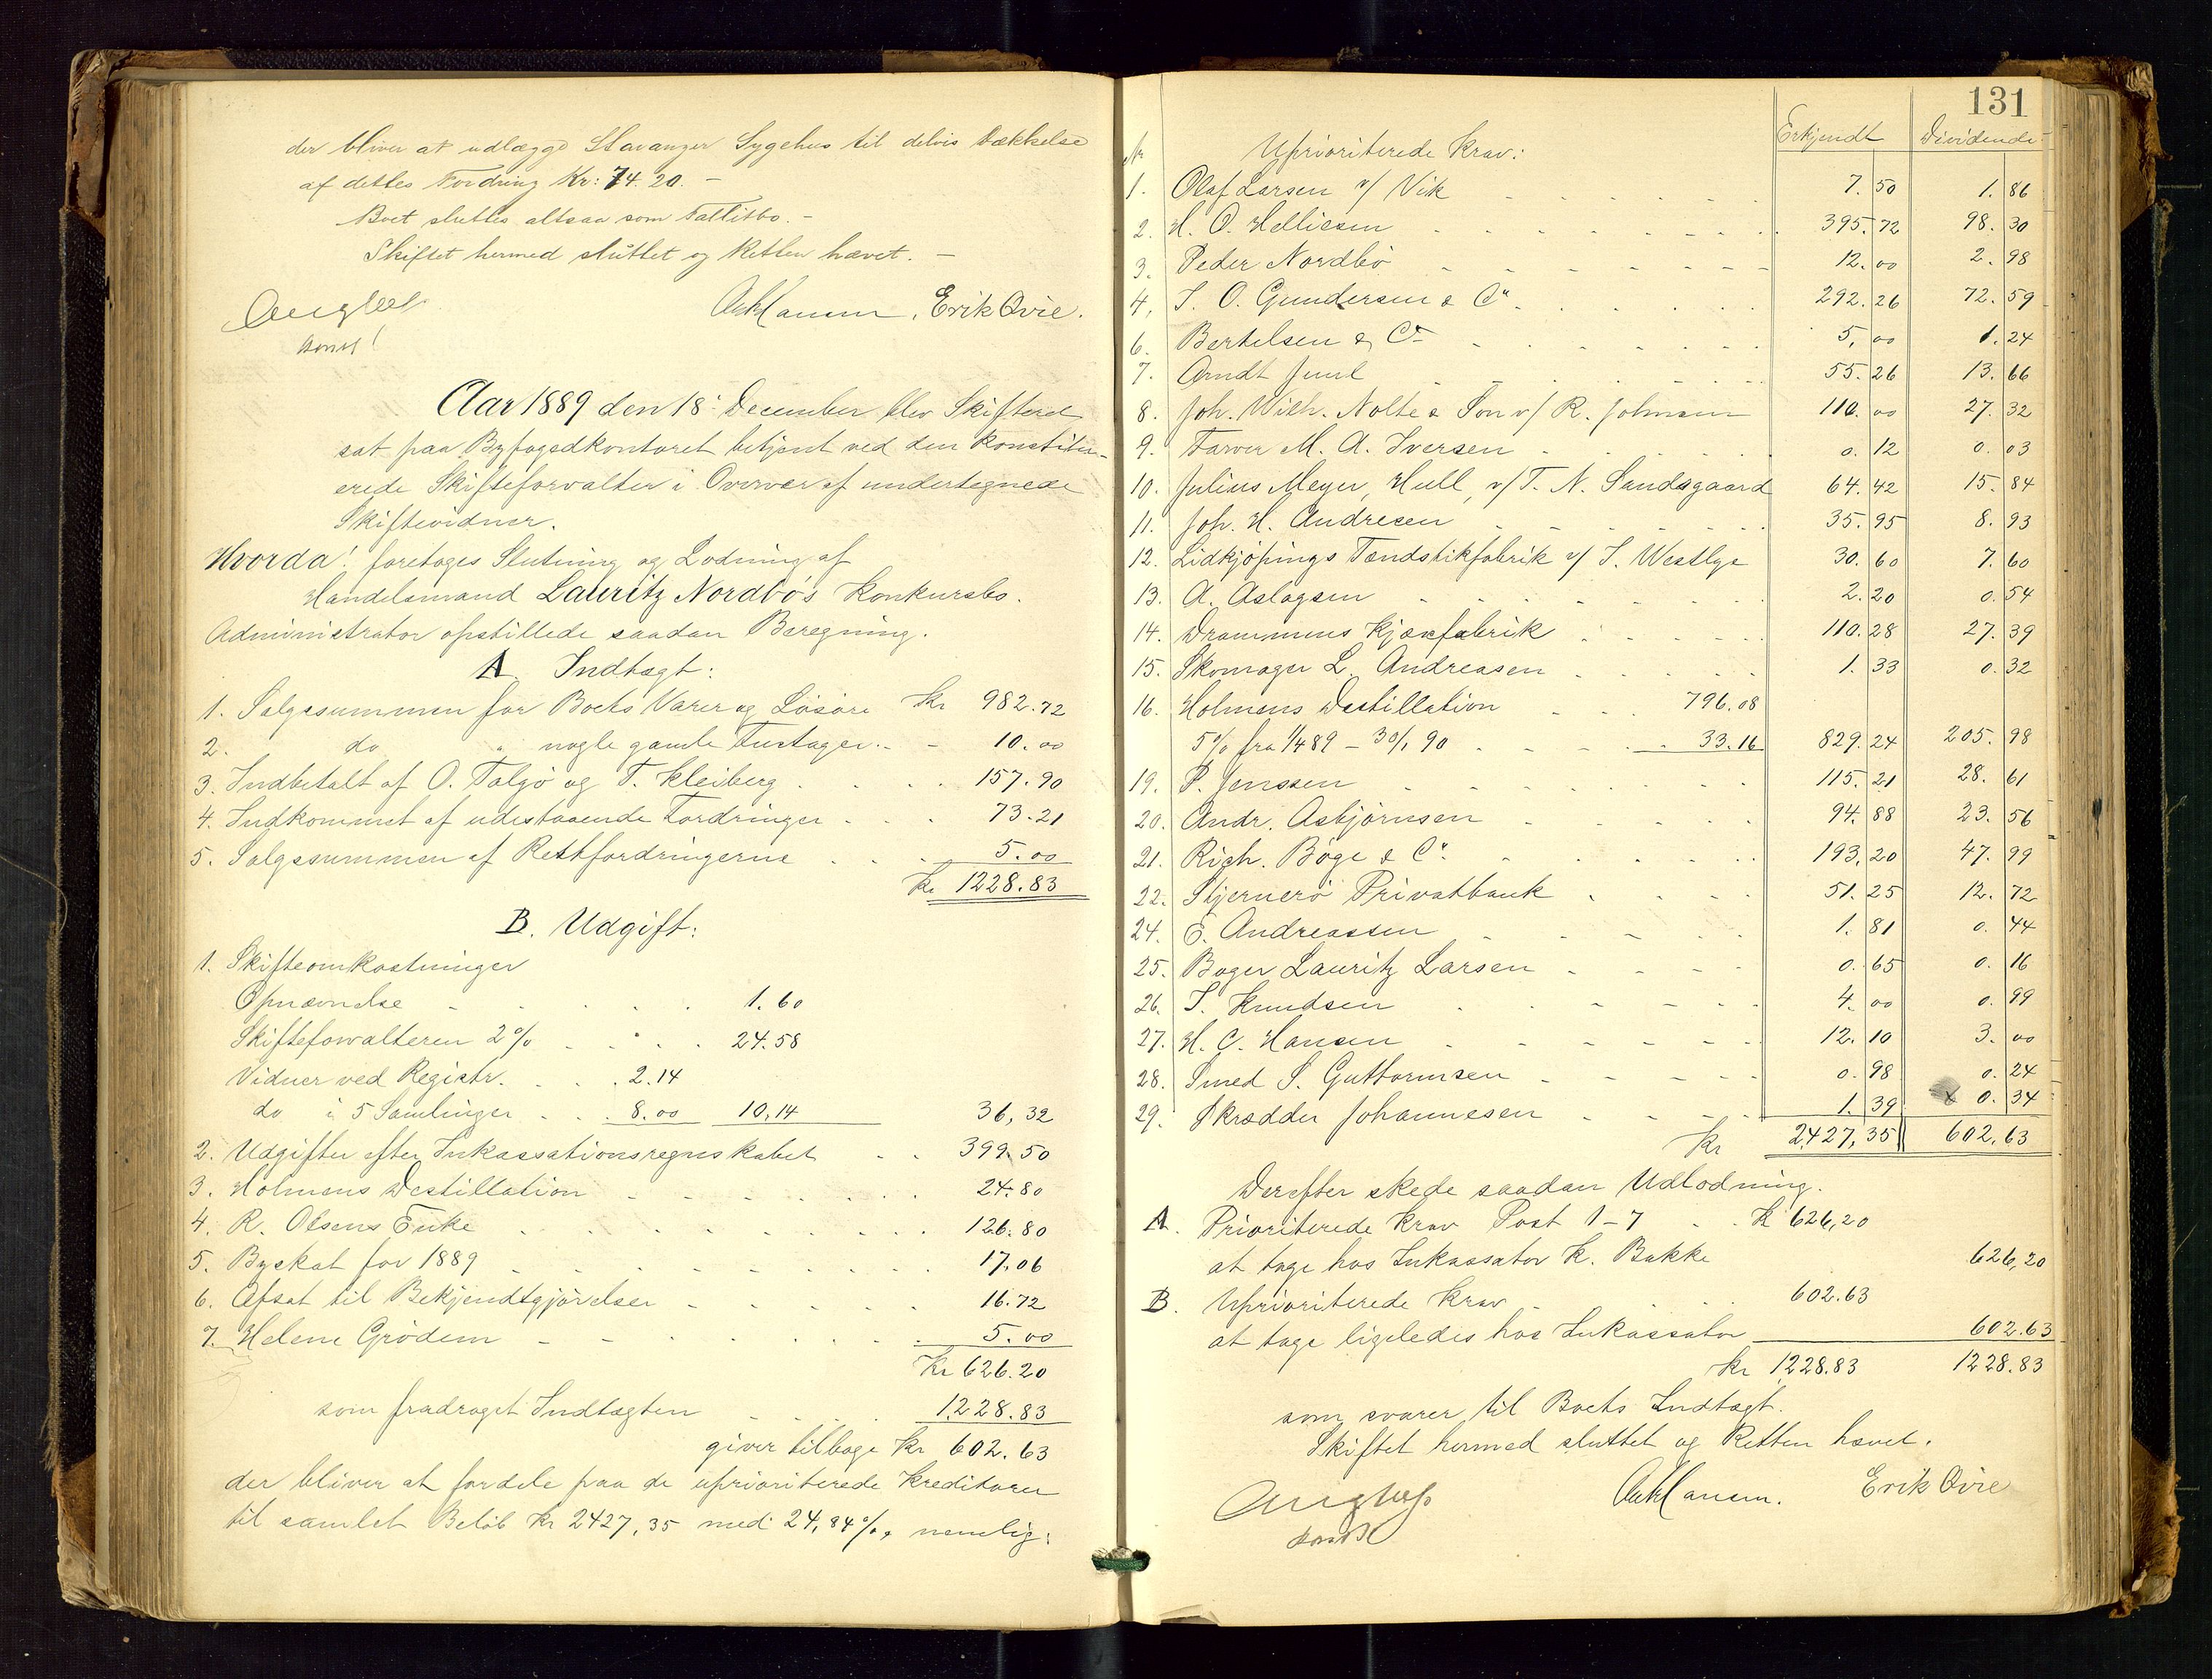 der bliver at udlægge Stavanger Sygehus til delvis Dækkelse
af dettes Fordring Kr: 74.20. –
Boet sluttes altsaa som Fallitbo. –
Skiftet hermed sluttet og Retten hævet. –
Erik Qvie.
konst!
Aar 1889 den 18' December blev Skifteret
sat paa Byfogedkontoret betjent ved den konstitu-
erede Skifteforvalter i Overvær af undertegnede
Skiftevidner.
Hvorda! foretoges Slutning og Lodning af
Handelsmand Lauritz Nordbö's Konkursbo.
Administrator opstillede saadan Beregning.
A. Indtægt:
1. Salgssummen for Boets Varer og Lösöre Kr 982.72
2. do " nogle gamle Fustager. – 10.00
3. Indbetalt af O. Talgö og T. Kleiberg 157.90
4. Indkommet af udestaaende Fordringer 73.21
5. Salgssummen af Restfordringerne 5.00
Kr 1228.83
B. Udgift:
1. Skifteomkostninger
Opnævnelse 1.60
Skifteforvalteren 2% 24.58
Vidner ved Registr. 2.14
do i 5 Samlinger 8.00 10,14 36,32
2. Udgifter efter Inkassationsregnskabet 399.50
3. Holmens Destillation 24.80
4. R. Olsens Enke 126.80
5. Byskat for 1889 17.06
6. Afsat til Bekjendtgjörelser 16.72
7. Helene Grödem 5.00
Kr 626.20
som fradraget Indtægten 1228.83
giver tilbage Kr 602.63
der bliver at fordele paa de uprioriterede Kreditorer
til samlet Belöb Kr 2427,35 med 24,84%, nemlig:
131
Nr Uprioriterede Krav: Erkjendt Dividende
1. Olaf Larsen v/ Vik 7.50 1.86
2. H. O. Helliesen 395.72 98.30
3. Peder Nordbö 12.00 2.98
4. S. O. Gundersen & Co. 292.26 72.59
6. Bertelsen & Co 5,00 1.24
7. Arndt Juul 55.26 13.66
8. Joh. Wilh. Nolte & Son v/ R. Johnsen 110.00 27.32
9. Farver M. A. Iversen 0.12 0.03
10. Julius Meyer, Hull, v/ T. N. Sandsgaard 64.42 15.84
11. Joh. H. Andresen 35.95 8.93
12. Lidkjöpings Tændstikfabrik v/ S. Westlye 30.60 7.60
13. A. Aslagsen 2.20 0.54
14. Drammens Kjæxfabrik 110.28 27.39
15. Skomager L. Andreasen 1.33 0.32
16. Holmens Destillation 796.08
5% fra 1/4 89 – 30/1 90 33.16 829.24 205.98
19. P. Jenssen 115.21 28.61
20. Andr. Asbjörnsen 94.88 23.56
21. Rich. Böge & Co. 193.20 47.99
22. Stjernerö Privatbank 51.25 12.72
24. E. Andreassen 1.81 0.44
25. Bager Lauritz Larsen 0.65 0.16
26. S. Knudsen 4.00 0.99
27. H. C. Hansen 12.10 3.00
28. Smed S. Guttormsen 0.98 0.24
29. Skrædder Johannesen 1.39 0.34
Kr 2427,35 602.63
Derefter skede saadan Udlodning.
A. Prioriterede Krav Post 1–7 K 626,20
at tage hos Inkassator K. Bakke 626,20
B. Uprioriterede Krav 602.63
at tage ligeledes hos Inkassator 602.63
Kr 1228.83 1228.83
som svarer til Boets Indtægt.
Skiftet hermed sluttet og Retten hævet.
Erik Qvie
konst